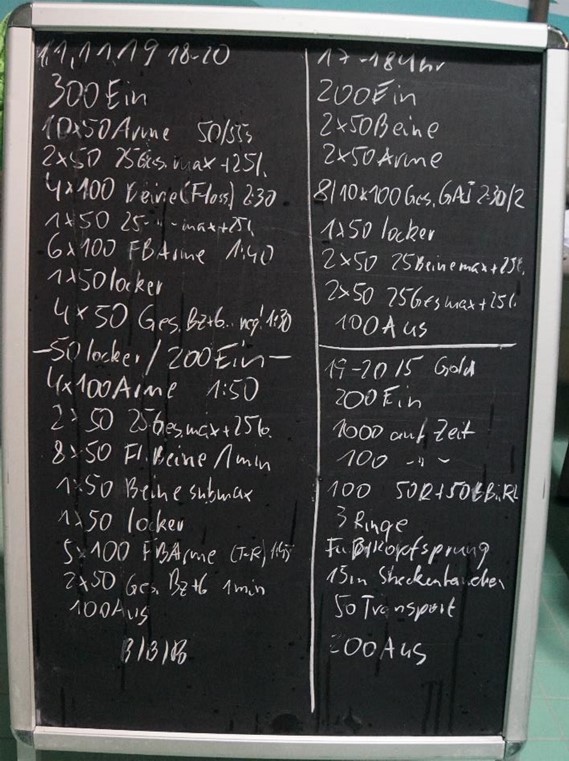 1,1,11,19 18-20
300 Ein
10x50 Arme 50/55
2x50 25 Ges. max + 25 l.
4x100 Beine (Floss) 2:30
1x50 25 - " - max + 25 l.
6x100 FB Arme 1:40
1x50 locker
4x50 Ges. Bz+6. 1:30
-50 locker / 200 Ein-
4x100 Arme 1:50
2x50 25 Ges max + 25 lo.
8x50 Fl. Beine / 1 min
1x50 Beine submax
1x50 locker
5x100 FB Arme
2x50 Ges. Bz+6 1 min
100 Aus
B/B/B
17-18 Uhr
200 Ein
2x50 Beine
2x50 Arme
8/10x100 Ges. GAI 2:30/2
1x50 locker
2x50 25 Beine max + 25 l.
2x50 25 Ges max + 25 l.
100 Aus
19-20 15 Gold
200 Ein
1000 auf Zeit
100 - " -
100 50R + 50
3 Ringe
Fußkopfsprung
15m Streckentauchen
50 Transport
200 Aus